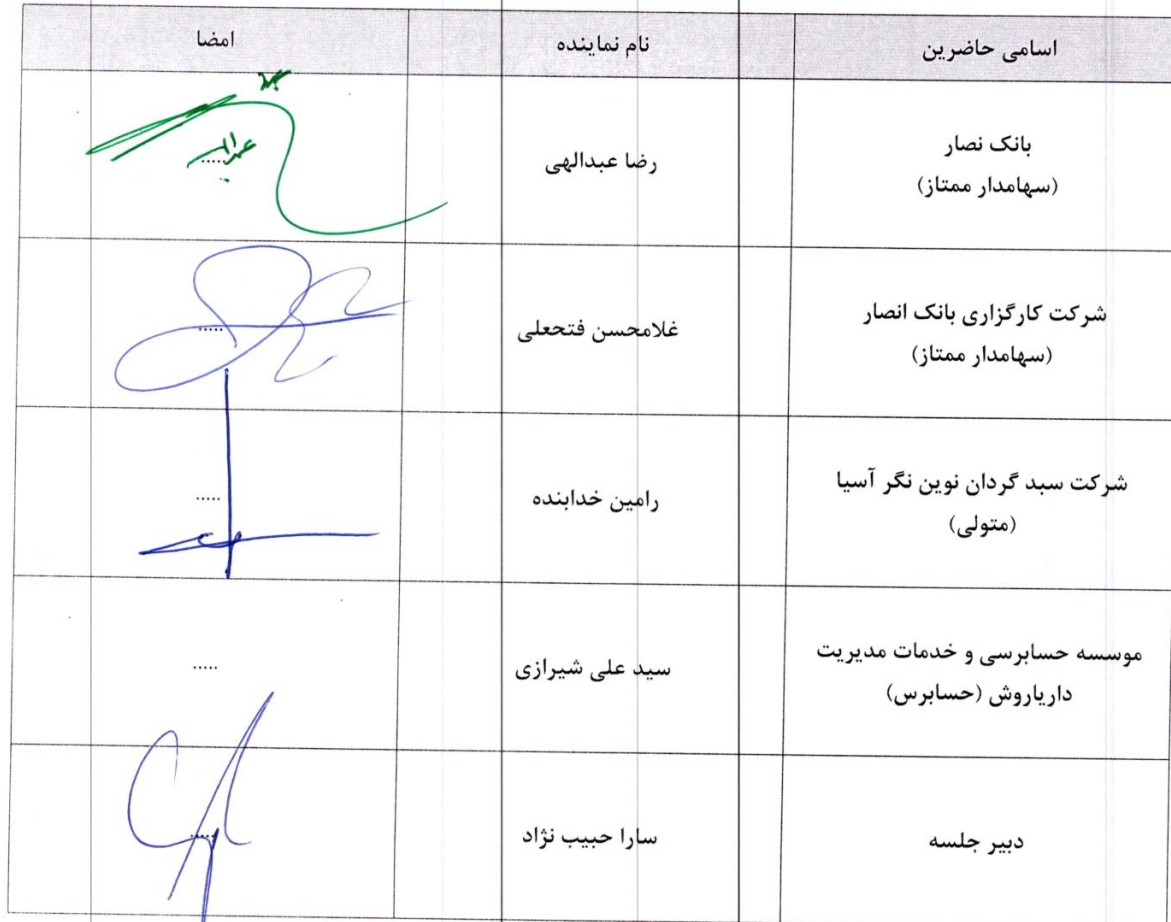 اسامی حاضرین
نام نماینده
امضا
بانک نصار
(سهامدار ممتاز)
رضا عبدالهی
.....
شرکت کارگزاری بانک انصار
(سهامدار ممتاز)
غلامحسن فتحعلی
.....
شرکت سبد گردان نوین نگر آسیا
(متولی)
رامین خدابنده
.....
موسسه حسابرسی و خدمات مدیریت
داریاروش (حسابرس)
سید علی شیرازی
.....
دبیر جلسه
سارا حبیب نژاد
.....